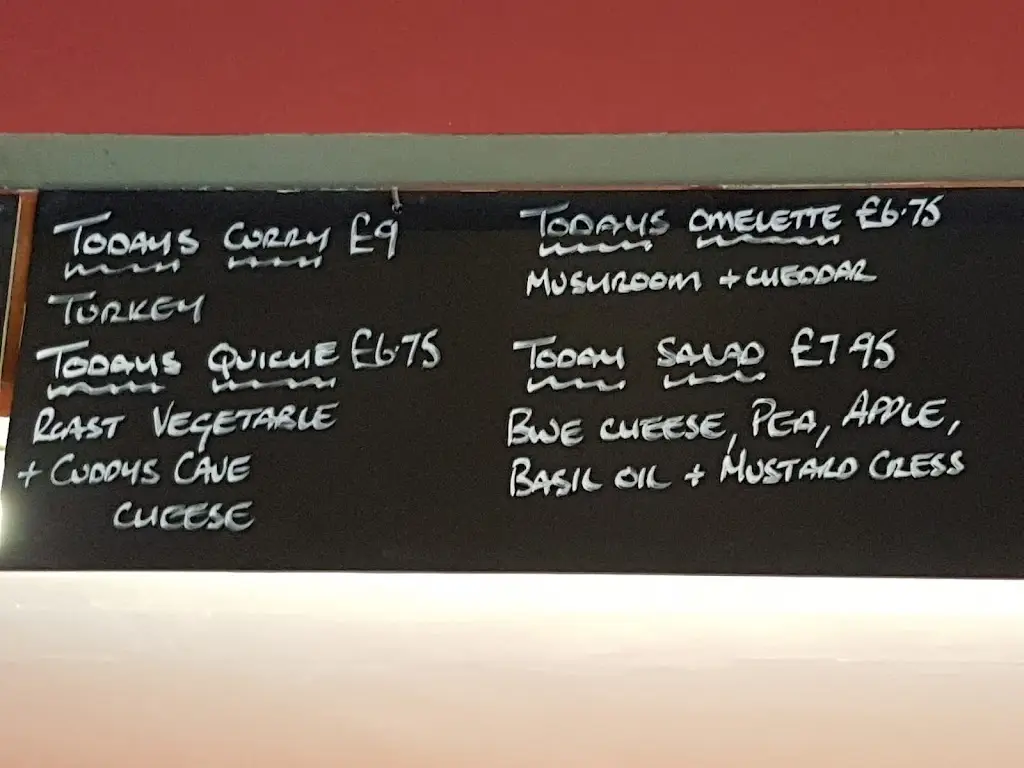 TODAYS CURRY £9
TURKEY
TODAYS QUICHE £6.75
ROAST VEGETABLE
+ CUDDYS CAVE
CHEESE
TODAYS OMELETTE £6.75
MUSHROOM + CHEDDAR
TODAY SALAD £7.95
BLUE CHEESE, PEA, APPLE,
BASIL OIL + MUSTARD CRESS